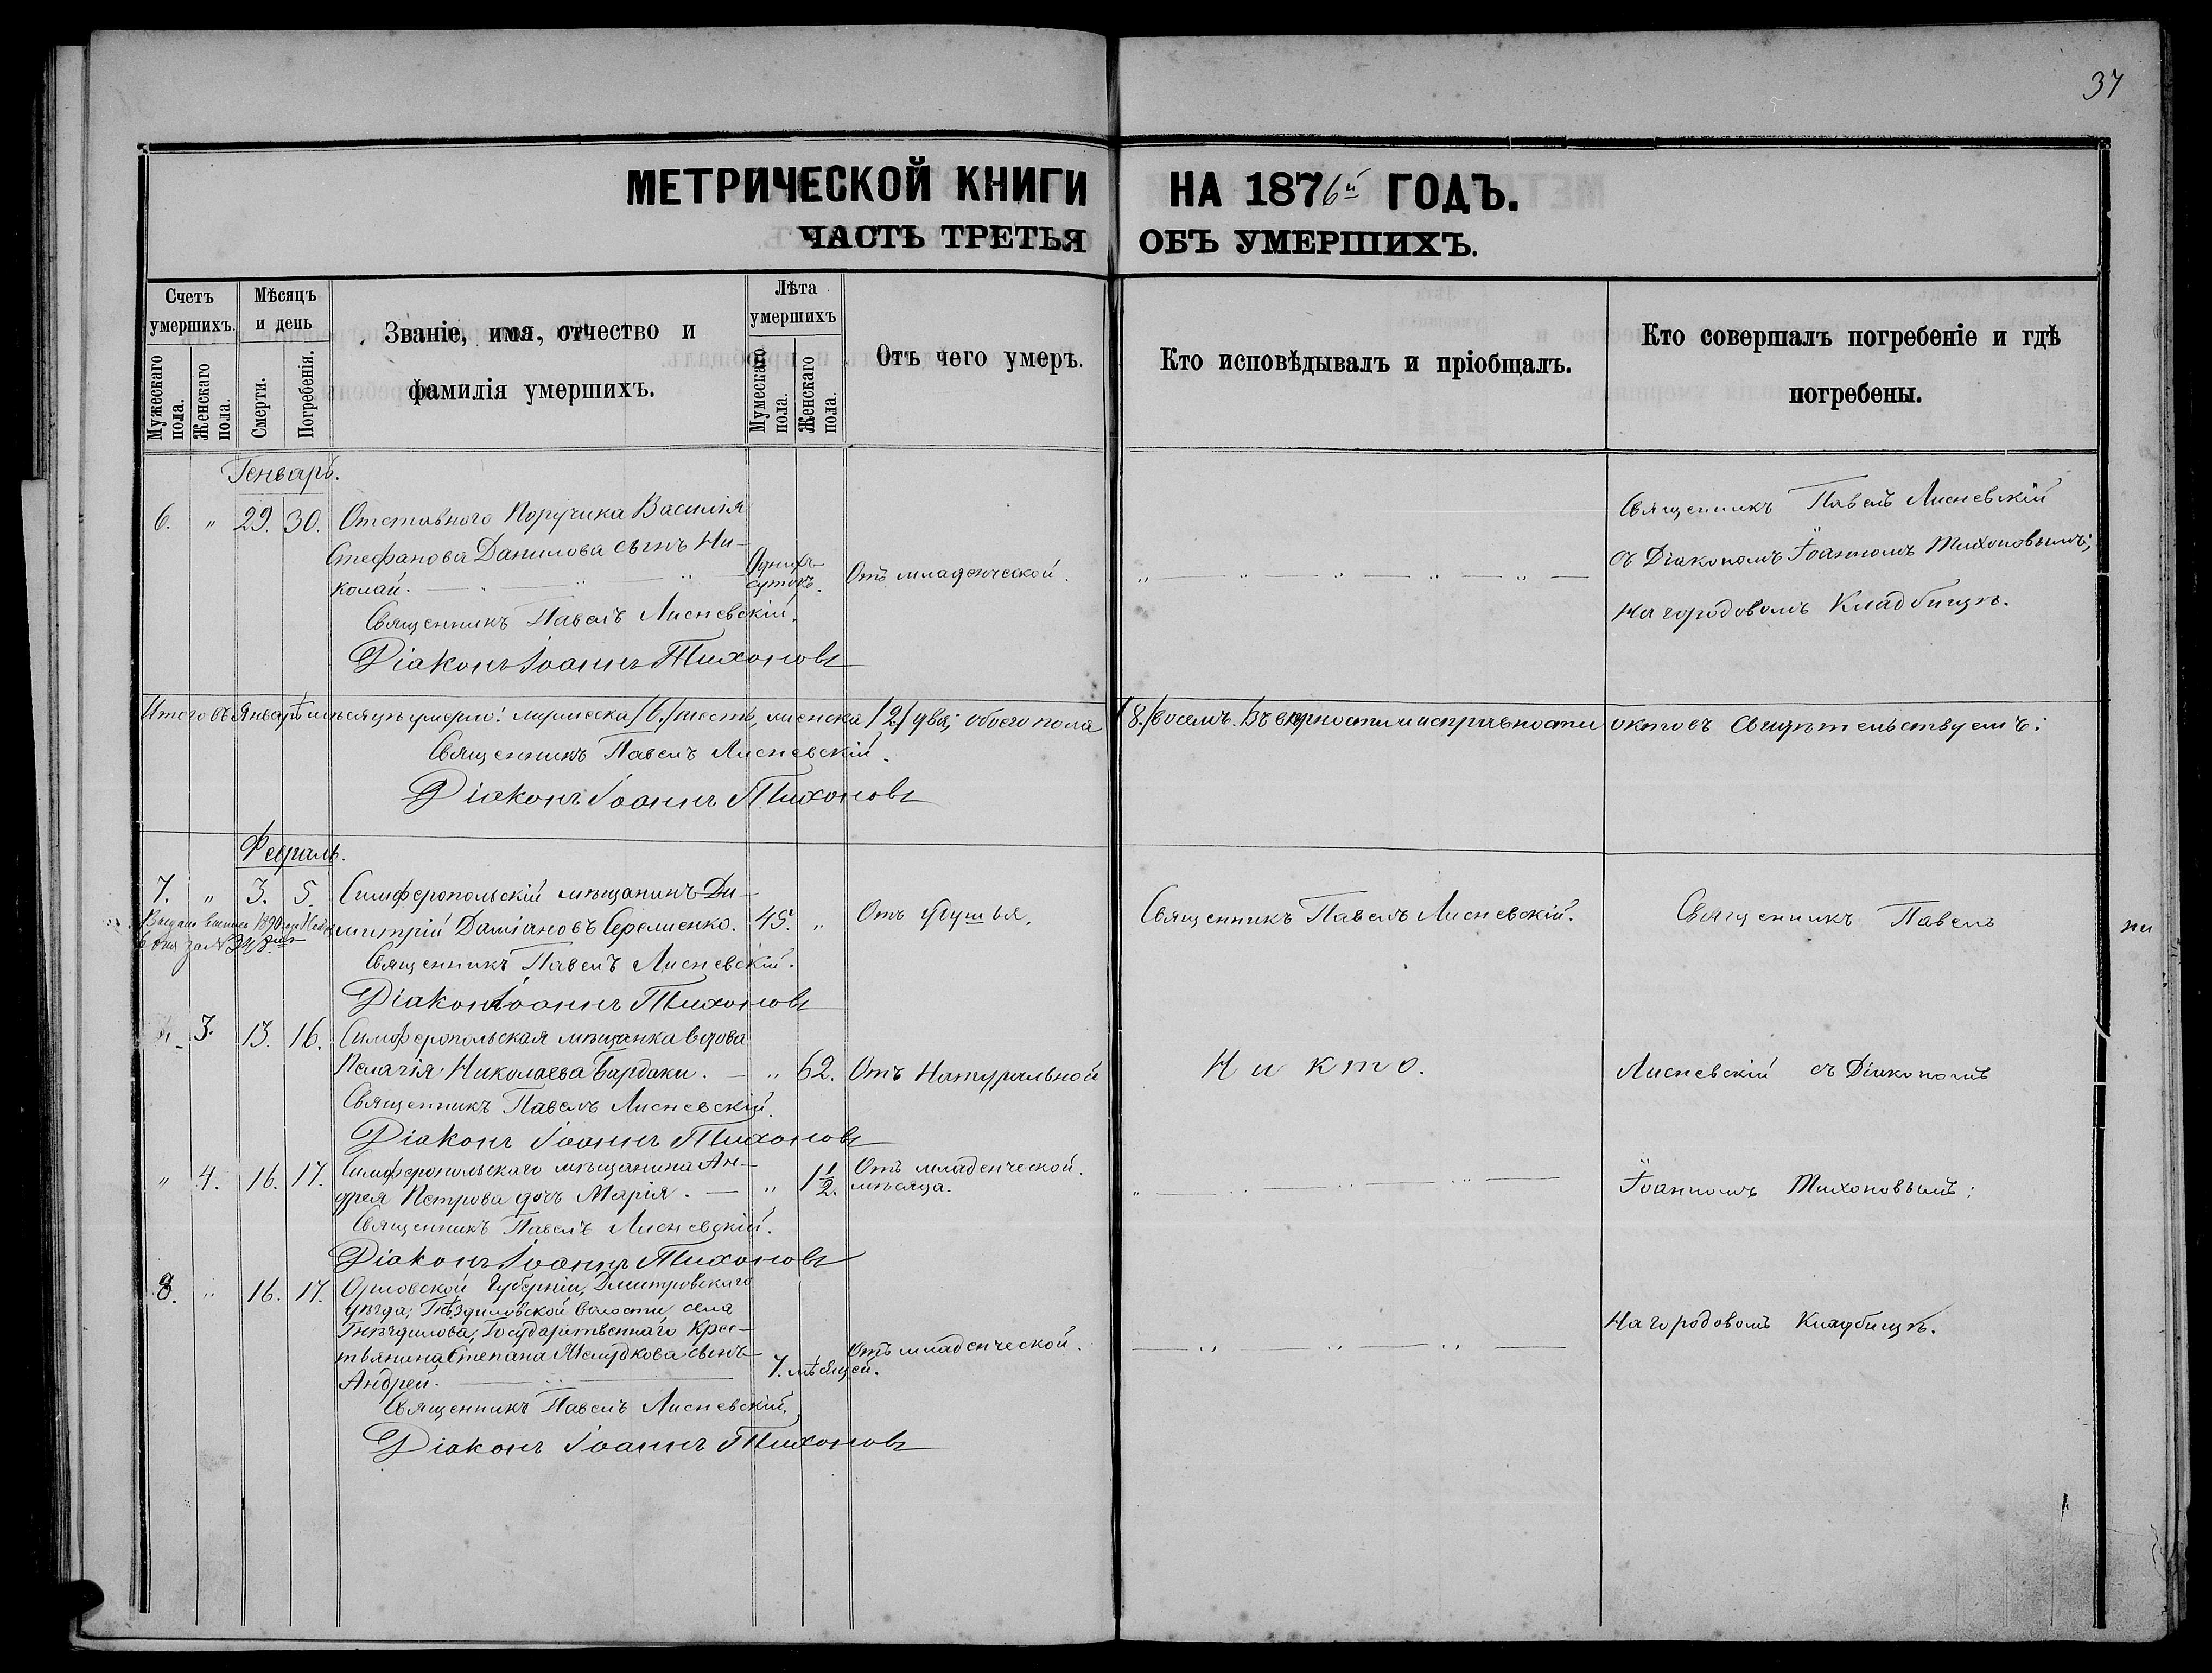 37
МЕТРИЧЕСКОЙ КНИГИ НА 1876й ГОДЪ.
ЧАСТЬ ТРЕТЬЯ ОБЪ УМЕРШИХЪ.
Счетъ умершихъ.
Мужескаго пола.
Женскаго пола.
Мѣсяцъ и день
Смерти.
Погребенія.
Званіе, имя, отчество и
фамилія умершихъ.
Лѣта умершихъ
Мужескаго пола.
Женскаго пола.
Отъ чего умеръ.
Кто исповѣдывалъ и пріобщалъ.
Кто совершалъ погребеніе и гдѣ
погребены.
Генварь.
6. " 29. 30. Отставного Поручика Василія
Стефанова Данилова сынъ Ни-
колай. Однихъ сутокъ. Отъ младенческой.
Священникъ Павелъ Лисневскій
съ Діакономъ Іоанномъ Тихоновымъ;
На городовомъ Кладбищѣ.
Священникъ Павелъ Лисневскій.
Діаконъ Іоаннъ Тихоновъ
Итого въ Январѣ мѣсяцѣ умерло: мужеска /6/ шесть, женска /2/ двѣ; обоего пола /8./ восемь. Въ вѣрности и исправности актовъ свидѣтельствуемъ:
Священникъ Павелъ Лисневскій.
Діаконъ Іоаннъ Тихоновъ
Февраль.
7. " 3. 5. Симферопольскій мѣщанинъ Ди-
митрій Даміановъ Сероменко. 45. " Отъ удушья. Священникъ Павелъ Лисневскій. Священникъ Павелъ
Священникъ Павелъ Лисневскій.
Діаконъ Іоаннъ Тихоновъ
" 3. 13. 16. Симферопольская мѣщанка вдова
Пелагія Николаева Бардаки. " 62. Отъ Натуральной Никто. Лисневскій съ Діакономъ
Священникъ Павелъ Лисневскій.
Діаконъ Іоаннъ Тихоновъ
" 4. 16. 17. Симферопольскаго мѣщанина Ан-
дрея Петрова дочь Марія. " 1 1/2. мѣсяца. Отъ младенческой. Іоанномъ Тихоновымъ;
Священникъ Павелъ Лисневскій.
Діаконъ Іоаннъ Тихоновъ
8. " 16. 17. Орловской Губерніи, Дмитровскаго
уѣзда; Гнѣздиловской Волости села
Гнѣздилова, Государственнаго Крес-
тьянина Степана Желудкова сынъ
Андрей. 7. мѣсяцей. Отъ младенческой. На городовомъ Кладбищѣ.
Священникъ Павелъ Лисневскій.
Діаконъ Іоаннъ Тихоновъ